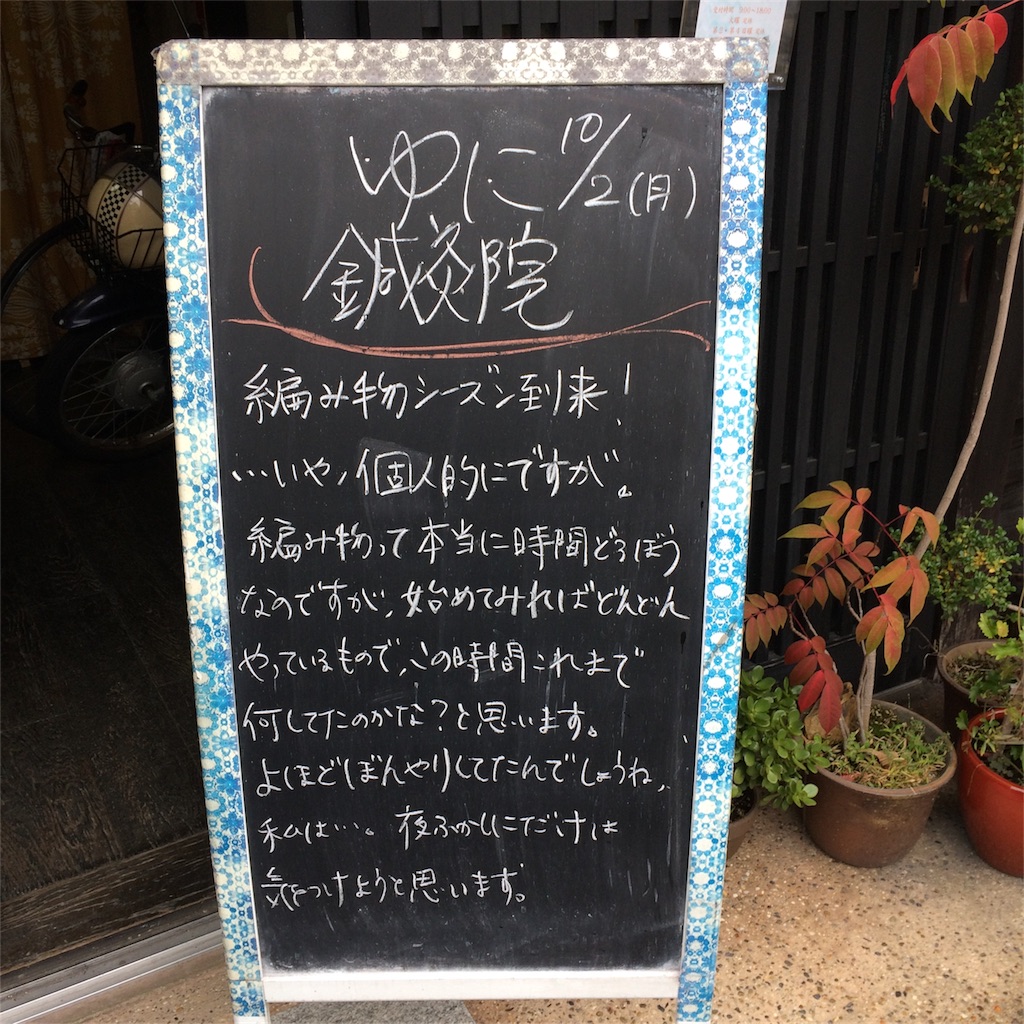 ゆに 10/2(月)
鍼灸院
編み物シーズン到来！
…いや、個人的にですが。
編み物って本当に時間どろぼう
なのですが、始めてみればどんどん
やっているもので、この時間これまで
何してたのかな？と思います。
よほどぼんやりしてたんでしょうね、
私は…。夜ふかしにだけは
気をつけようと思います。